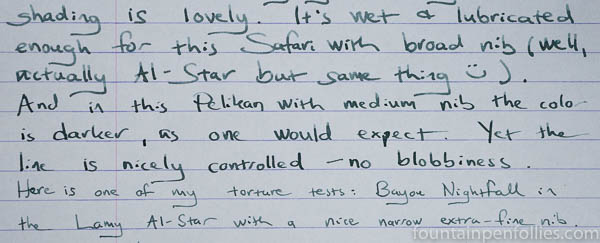 shading is lovely. It's wet & lubricated
enough for this Safari with broad nib (well,
actually Al-Star but same thing ☺).
And in this Pelikan with medium nib the colo
is darker, as one would expect. Yet the
line is nicely controlled – no blobbiness.
Here is one of my torture tests: Bayou Nightfall in
the Lamy Al-Star with a nice narrow extra-fine nib.
fountainpenfollies.com